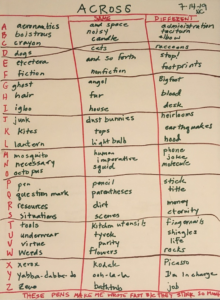 ACROSS 7-14-09
SAME DIFFERENT
A aeronautics and space administration
B boistrous noisy taciturn
C crayon candle elbow
D dogs cats raccoons
E etcetera and so forth stop!
F fiction nonfiction footprints
G ghost angel Bigfoot
H hair fur blood
I igloo house desk
J junk dust bunnies heirlooms
K kites tops earthquakes
L lantern light bulb hood
M mosquito human phone
N necessary imperative joke
O octopus squid molecule
P pen pencil stick
Q question mark parentheses title
R resources dirt money
S situations scenes eternity
T tools kitchen utensils fingernails
U underwear shingles
V virtue purity life
W weeds flowers racks
X xerox kodak Picasso
Y yabba-dabba-do ooh-la-la I'm in charge
Z Zone bathtub job
THESE PENS MAKE ME WRITE FAST BIC THEY STINK SO MUCH